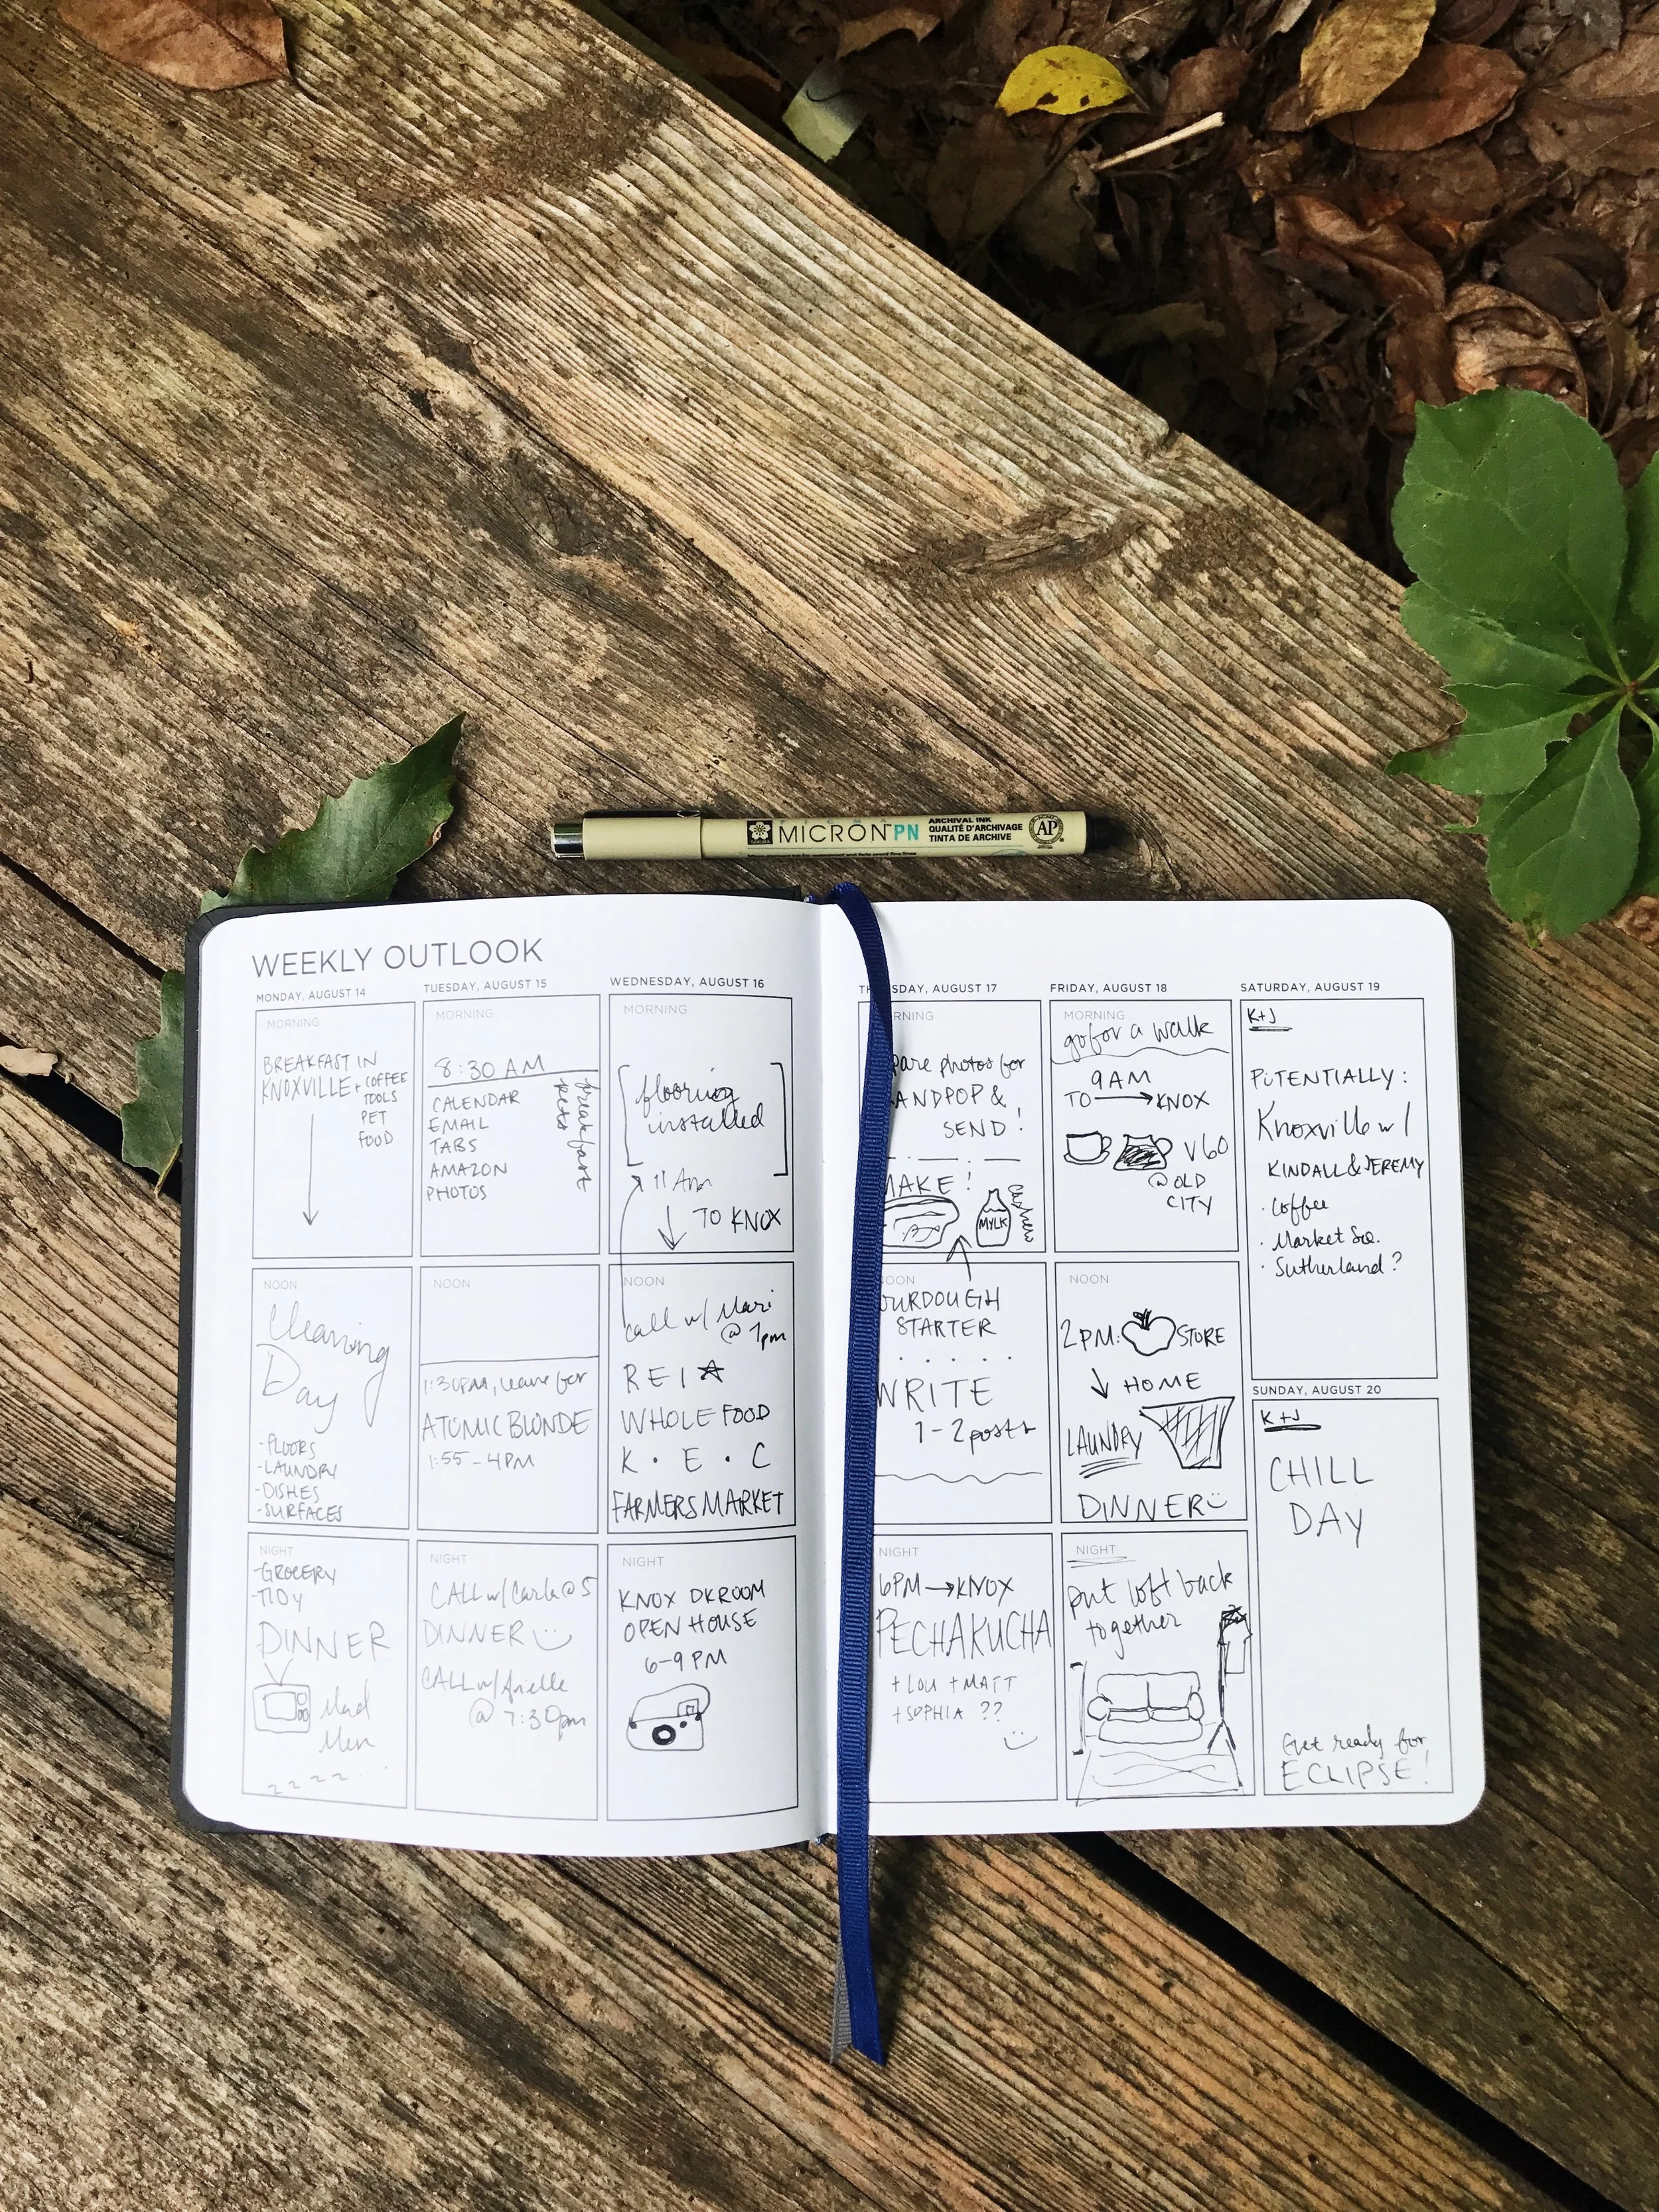 MICRON PN
ARCHIVAL INK
QUALITÉ D'ARCHIVAGE
TINTA DE ARCHIVE
AP
WEEKLY OUTLOOK
MONDAY, AUGUST 14
MORNING
BREAKFAST IN
KNOXVILLE + COFFEE
TOOLS
PET
FOOD
NOON
Cleaning
Day
-FLOORS
-LAUNDRY
-DISHES
-SURFACES
NIGHT
-GROCERY
-TIDY
DINNER
Mad
Men
z z z z ...
TUESDAY, AUGUST 15
MORNING
8:30 AM
CALENDAR
EMAIL
TABS
AMAZON
PHOTOS
breakfast
pets
NOON
1:30PM, leave for
ATOMIC BLONDE
1:55-4PM
NIGHT
CALL w/ Carla @ 5
DINNER
CALL w/ Arielle
@ 7:30pm
WEDNESDAY, AUGUST 16
MORNING
flooring
installed
11 Am
TO KNOX
NOON
call w/ Mari
@ 1pm
REI
WHOLE FOOD
K · E · C
FARMERS MARKET
NIGHT
KNOX DKROOM
OPEN HOUSE
6-9 PM
SDAY, AUGUST 17
RNING
pare photos for
ANDPOP &
SEND!
MAKE!
MYLK
cashew
NOON
OURDOUGH
STARTER
WRITE
1-2 posts
NIGHT
6PM → KNOX
PECHAKUCHA
+ LOU + MATT
+ SOPHIA ??
FRIDAY, AUGUST 18
MORNING
go for a walk
9AM
TO → KNOX
V60
@ OLD
CITY
NOON
2PM: STORE
↓ HOME
LAUNDRY
DINNER
NIGHT
put loft back
together
SATURDAY, AUGUST 19
K+J
POTENTIALLY:
Knoxville w/
KINDALL & JEREMY
· Coffee
· Market Sq.
· Sutherland?
SUNDAY, AUGUST 20
K+J
CHILL
DAY
Get ready for
ECLIPSE!